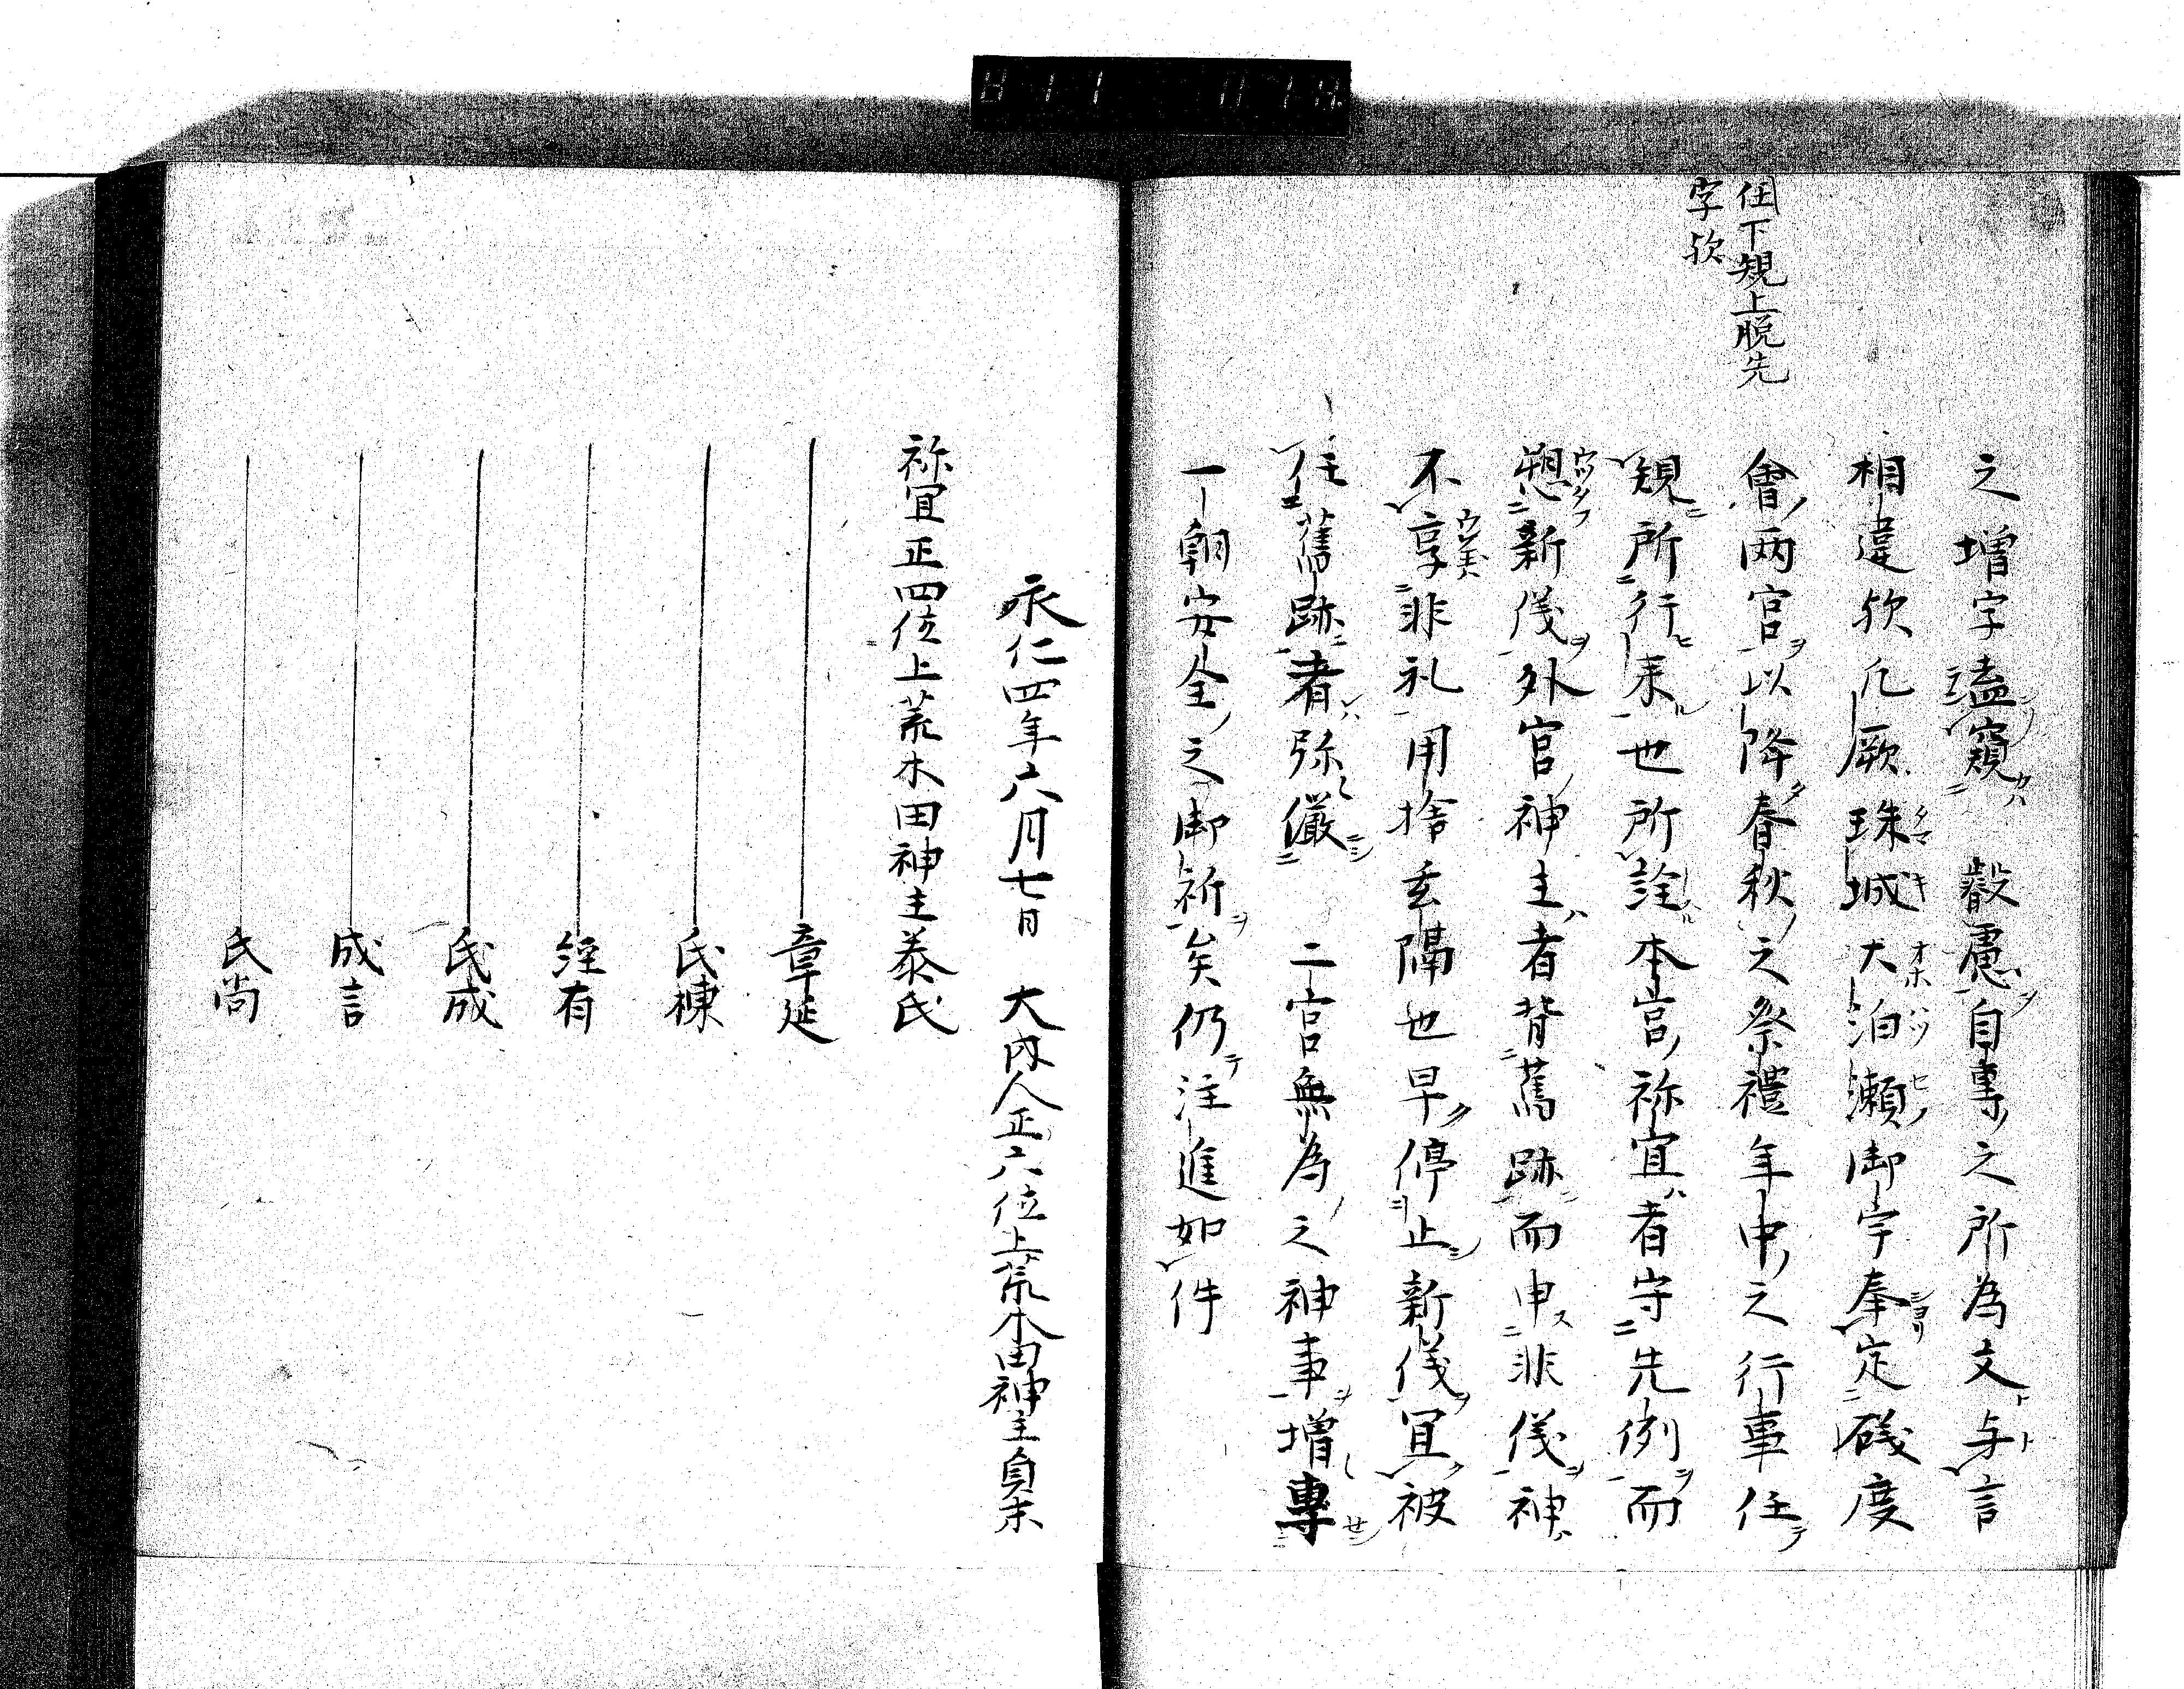 任下規上脱先
字欤
之増字溘窺　叡慮自専之所為文与言
相違欤凡厥珠城大泊瀬御宇奉定礒度
會両宮以降春秋之祭禮年中之行事任
規所行来也所詮本宮祢宜者守先例而
愬新儀外宮神主者背舊跡而申非儀神
不享非礼用捨玄隔也早停止新儀冝被
任舊跡者弥儼　二宮無為之神事増専
一朝安全之御祈矣仍注進如件
永仁四年六月七日　大内人正六位上荒木田神主貞末
祢宜正四位上荒木田神主泰氏
章延
氏棟
経有
氏成
成言
氏尚